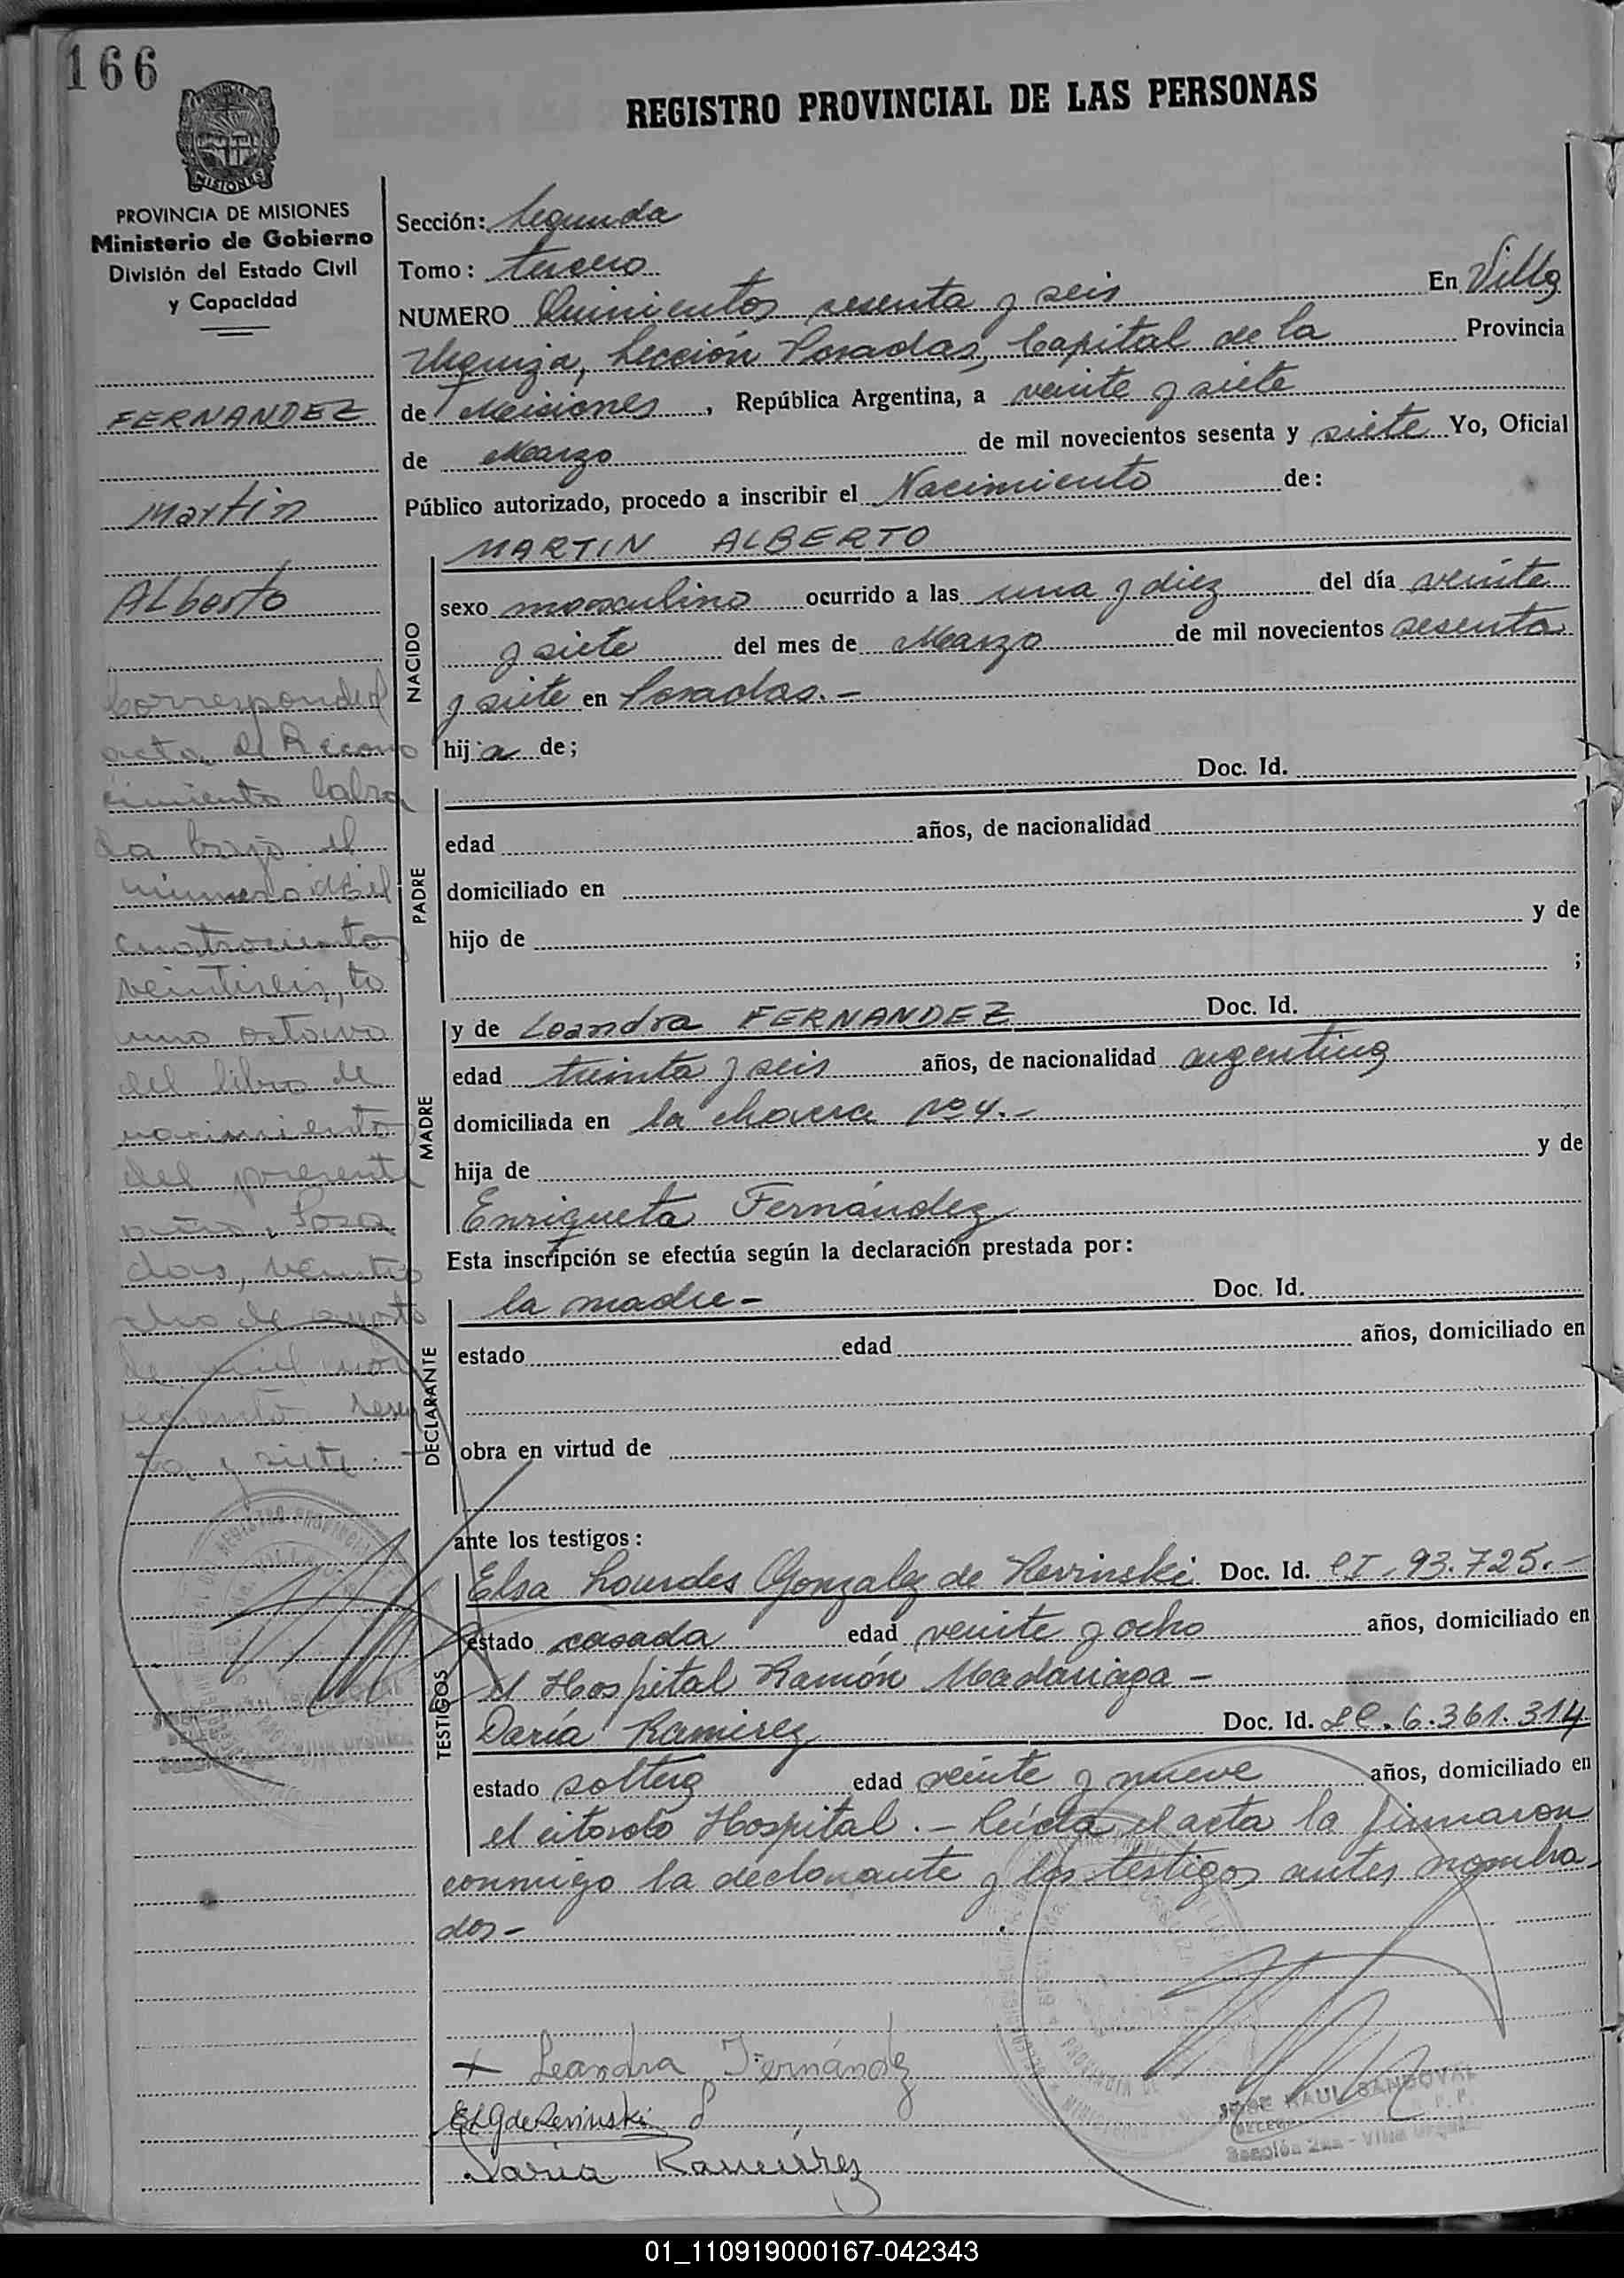 166
REGISTRO PROVINCIAL DE LAS PERSONAS
MISIONES
PROVINCIA DE MISIONES
Ministerio de Gobierno
División del Estado Civil
y Capacidad
FERNANDEZ
Martin
Alberto
Corresponde el
acta de Recono
cimiento labra
da bajo el
número mil
cuatrocientos
veintiseis, to
mo octavo
del libro de
nacimiento
del presente
año. Posa
das, veintio
cho de agosto
de mil nov
ecientos sesen
ta y siete.
Sección: Segunda
Tomo: tercero
NUMERO Quinientos sesenta y seis En Villa
Urquiza, Sección Posadas, Capital de la Provincia
de Misiones, República Argentina, a veinte y siete
de Marzo de mil novecientos sesenta y siete Yo, Oficial
Público autorizado, procedo a inscribir el Nacimiento de:
NACIDO
MARTIN ALBERTO
sexo masculino ocurrido a las una y diez del día veinte
y siete del mes de Marzo de mil novecientos sesenta
y siete en Posadas.-
hij a de;
PADRE
Doc. Id.
edad años, de nacionalidad
domiciliado en
hijo de y de
;
MADRE
y de Leandra FERNANDEZ Doc. Id.
edad treinta y seis años, de nacionalidad argentina
domiciliada en la chacra no 4.-
hija de y de
Enriqueta Fernández
Esta inscripción se efectúa según la declaración prestada por:
DECLARANTE
la madre- Doc. Id.
estado edad años, domiciliado en
obra en virtud de
ante los testigos:
TESTIGOS
Elsa Lourdes Gonzalez de Doc. Id. CI. 93.725.-
estado casada edad veinte y ocho años, domiciliado en
el Hospital Ramón Madariaga-
Daría Ramirez Doc. Id. LC. 6.361.314
estado soltera edad veinte y nueve años, domiciliado en
el citado Hospital.- Leída el acta la firmaron
conmigo la declarante y los testigos antes nombra-
dos-
+ Leandra Fernández
Daria Ramirez
JOSE RAUL SANDOVAL
Sección 2da - Villa Urquiza
01_110919000167-042343